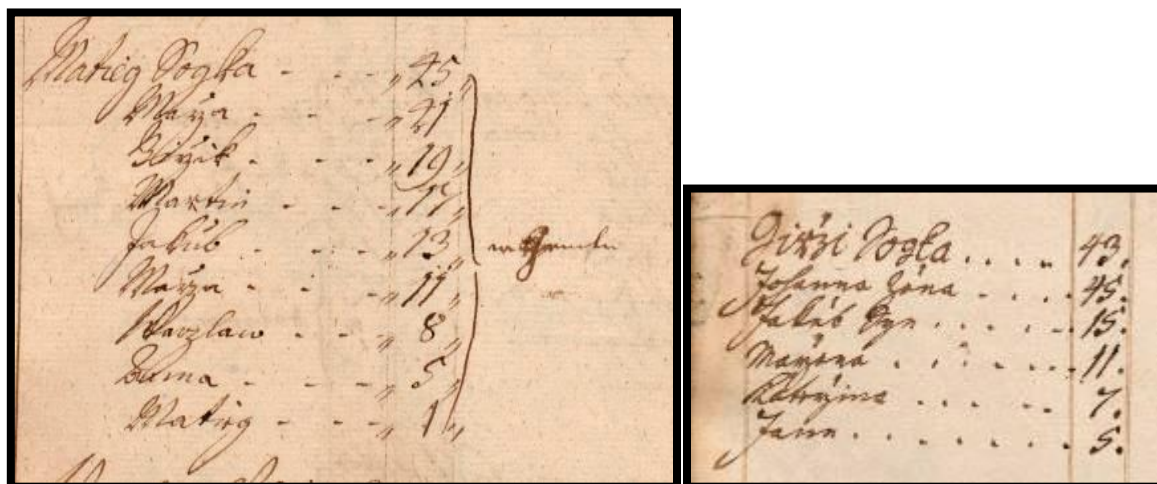 Matieg Sogka - - - „ 45 „
Marya - - - „ 41 „
Girzik - - - „ 19 „
Martin - - - „ 17 „
Jakub - - - „ 13 „
Maryа - - - „ 11 „
Waczlaw - - - „ 8 „
Anna - - - „ 5 „
Matieg - - - „ 1 „
Girzi Sogka .... 43.
Johanna Žena .... 45.
Jakub Syn ..... 15.
Maryana ..... 11.
Katerzina ..... 7.
Jann ....... 5.